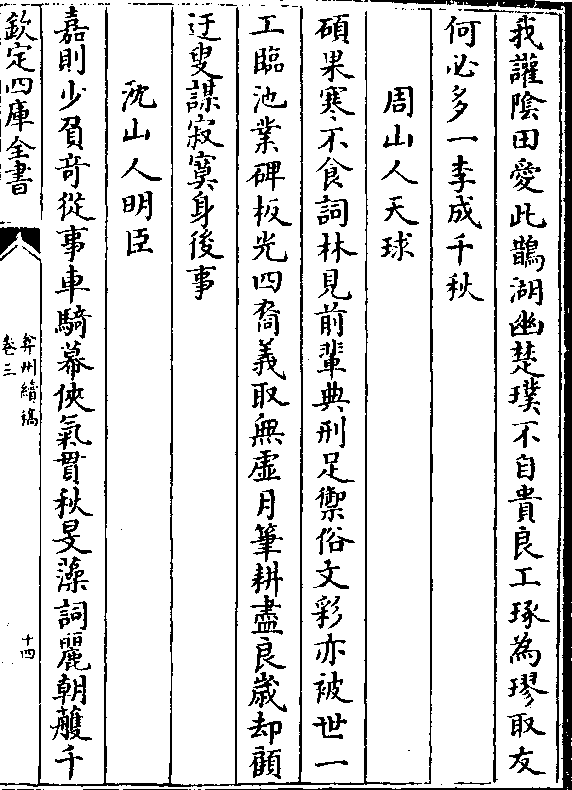 我讙陰田愛此鵲湖幽楚璞不自貴良工琢為璆取友
何必多一李成千秋
周山人天球
碩果寒不食詞林見前輩典刑足禦俗文彩亦被世一
工臨池業碑板光四裔義取無虛月筆耕盡良歲却顧
迂叟謀寂寞身後事
沈山人明臣
嘉則少負竒從事車騎幕俠氣貫秋旻藻詞麗朝雘千
欽定四庫全書
弇州續稿
卷三
十四